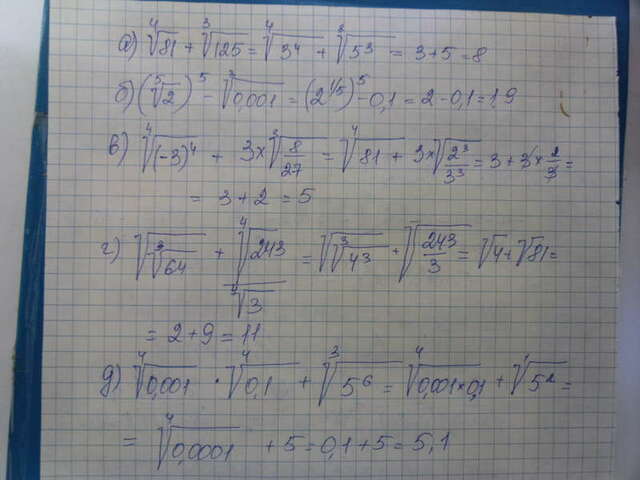 а) ⁴√81 + ³√125 = ⁴√3⁴ + ³√5³ = 3+5=8
б) (⁵√2)⁵ - ³√0,001 = (2^(1/5))⁵ - 0,1 = 2 - 0,1 = 1,9
в) ⁴√(-3)⁴ + 3×³√(8/27) = ⁴√81 + 3×√(2³/3³) = 3 + 3×2/3 =
= 3 + 2 = 5
г) √(³√64) + ⁴√243/⁴√3 = √(³√4³) + √(243/3) = √4 + √81 =
= 2 + 9 = 11
д) ⁴√0,001 · ⁴√0,1 + ³√5⁶ = ⁴√0,001×0,1 + √5² =
= ⁴√0,0001 + 5 = 0,1 + 5 = 5,1